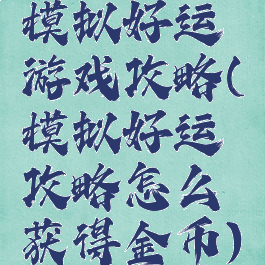 模拟好运
游戏攻略(
模拟好运
攻略怎么
获得金币)